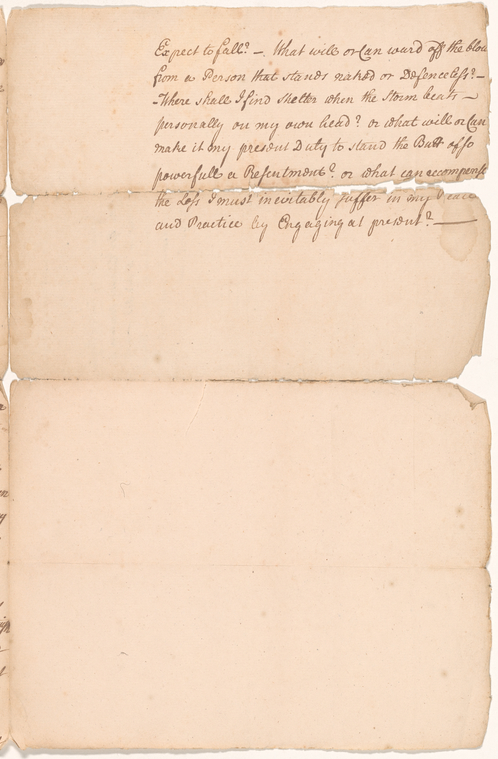 Expect to fall? –. What will or Can ward off the blow
from a Person that stands naked or Defenceless? –
– Where shall I find shelter when the Storm beats –
personally on my own head? or what will or Can
make it my present Duty to stand the Butt of so
powerfull a Resentment? or what can accompense
the Loss I must inevitably suffer in my Peace
and Practice by Engaging at present? —